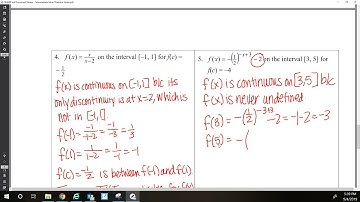 4. f(x) = x/(x−2) on the interval [−1, 1] for f(c) =
−1/2
f(x) is continuous on [-1,1] b/c its
only discontinuity is at x=2, which is
not in [-1,1].
f(-1) = -1/(-1-2) = -1/-3 = 1/3
f(1) = 1/(1-2) = 1/-1 = -1
f(c) = -1/2 is between f(-1) and f(1).
5. f(x) = −(1/2)^(−x+3) − 2 on the interval [3, 5] for
f(c) = −4
f(x) is continuous on [3,5] b/c
f(x) is never undefined
f(3) = -(1/2)^(-3+3) -2 = -1-2 = -3
f(5) = -(
5:09 PM
9/4/2019